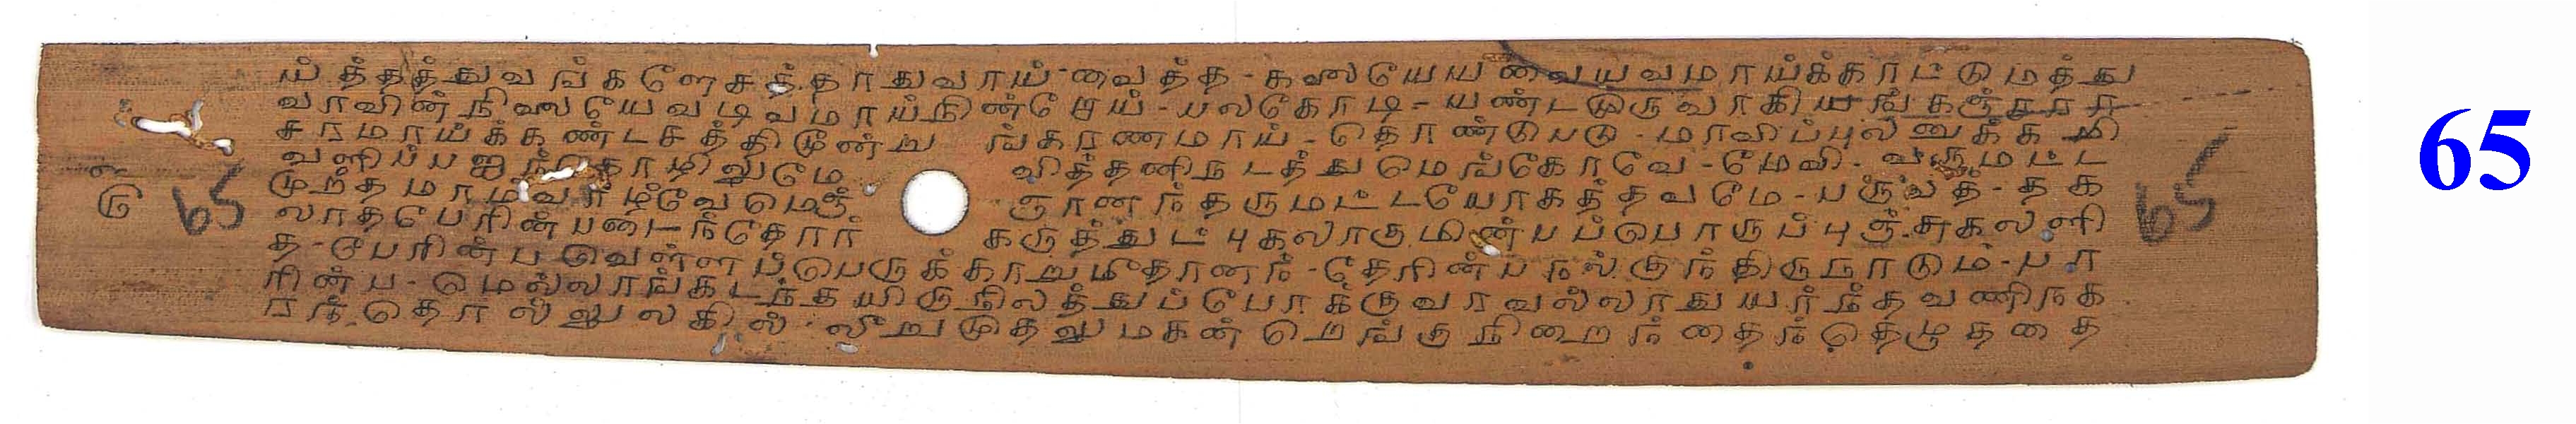 ய் த்தத்துவங்களேசத்தாதுவாய்-வைத்த-கலையேயவையவமாய்க்காட்டுமத்து
வாவின்நிலையேவடிவமாய்நின்றாய்-பலகோடி-யண்டமுருவாகி
சரமாய்க்கண்டசத்திமூன்று ங்கரணமாய்-தொண்டுபடு-மாவிப்புலனுக்கறி
வளிப்பஐந்தொழிலுமே வித்தனிநடத்துமெங்கோவே-மேவி-வருமட்ட
முறத்தமாம்வாழ்வேமெஞ் ஞானந்தருமட்டயோகத்தவமே-பருவத்-தக
லாதபேரின்படைந்தோர் கருத்துட் புகலாகுமின்பப்பொருப்புஞ்-சுகலளி
த-பேரின்பவெள்ளப்பெருக்காறுமீதானந்-தேரின்பநல்குந்திருநாடும்-பா
ரின்ப-மெல்லாங்கடந்தயிருநிலத்துப்போக்குவரவல்லாதுயர்ந்தவணிநக
ரந்-தொல்லுலகில்-லீறுமுதலுமகன்றெங்குநிறைந்தைந்தெழுதத
65
65
65